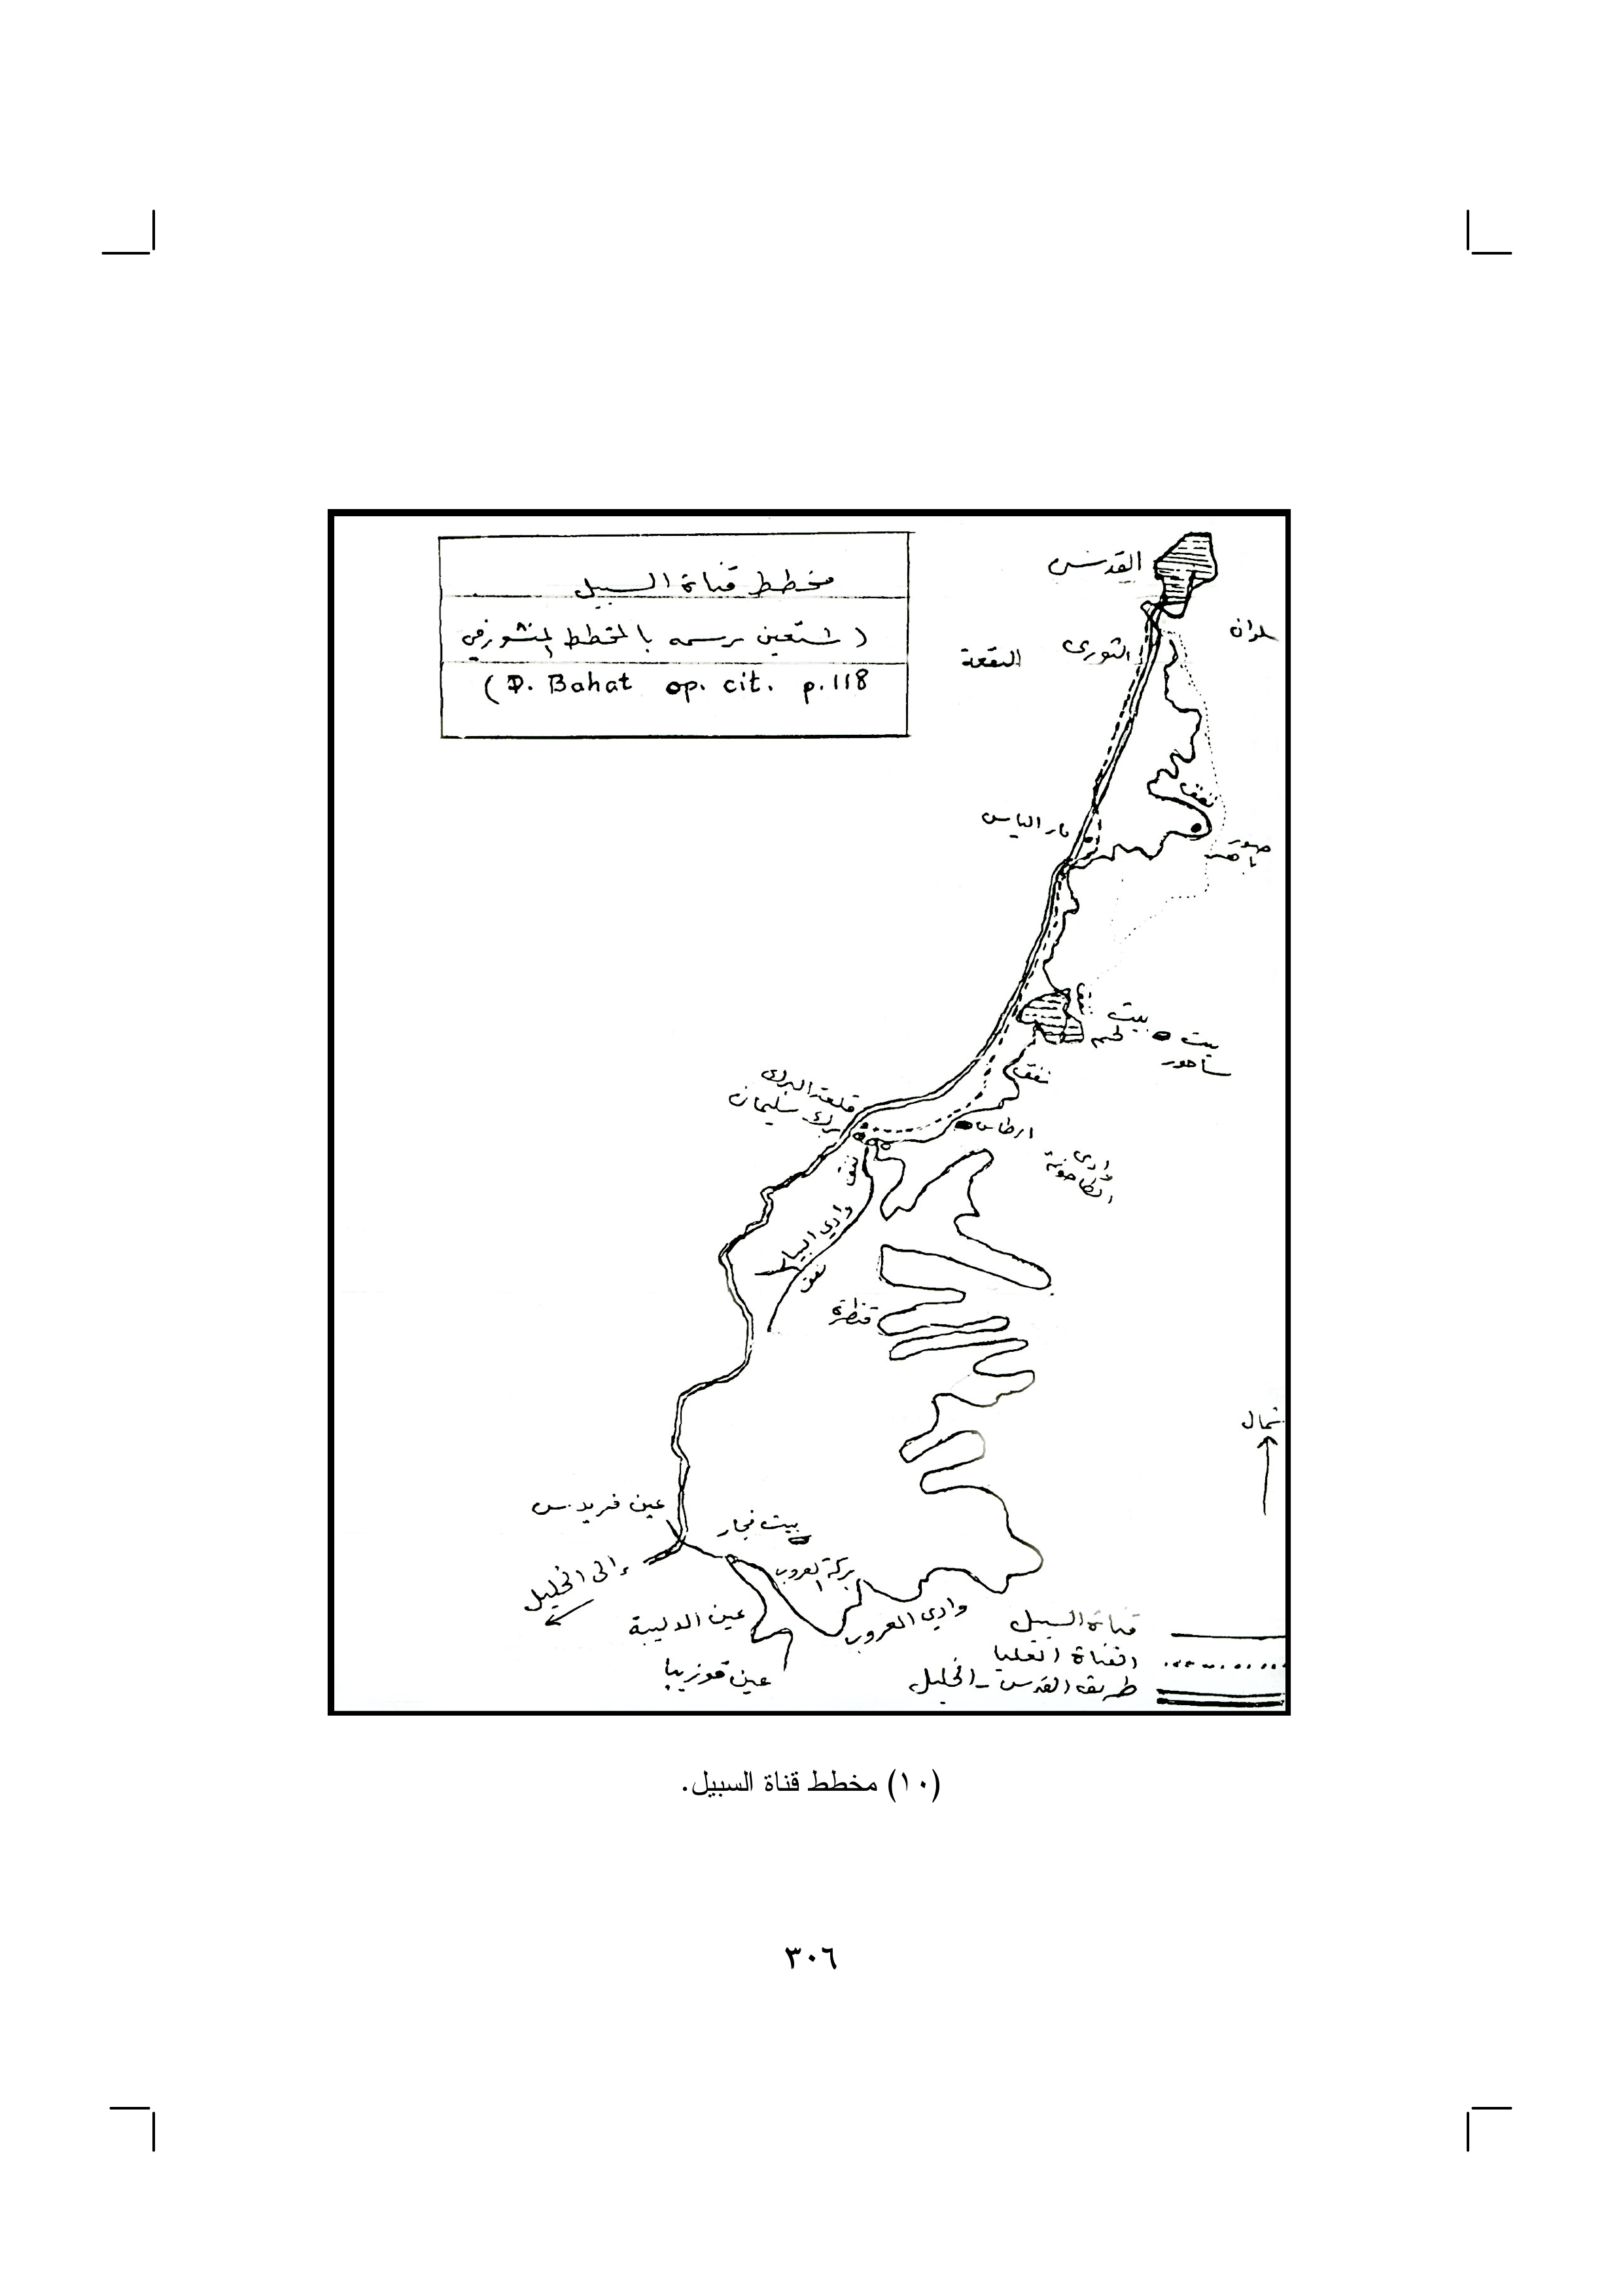 مخطط قناة السبيل
(استعين برسمه بالمخطط المنشور في
D. Bahat op. cit. p.118)
القدس
سلوان
الثوري
البقعة
نفق
مار الياس
صور
باهر
نفق
بيت
لحم
بيت
ساحور
نفق
قلعة البرك
برك سليمان
ارطاس
وادي
الطاحونة
نفق
وادي البيار
نفق
قنطرة
شمال
عين فريديس
بيت فجار
إلى الخليل
بركة العروب
عين الدلبة
وادي العروب
عين قوزيبا
قناة السبيل
القناة العليا
طريق القدس - الخليل
(١٠) مخطط قناة السبيل.
٣٠٦